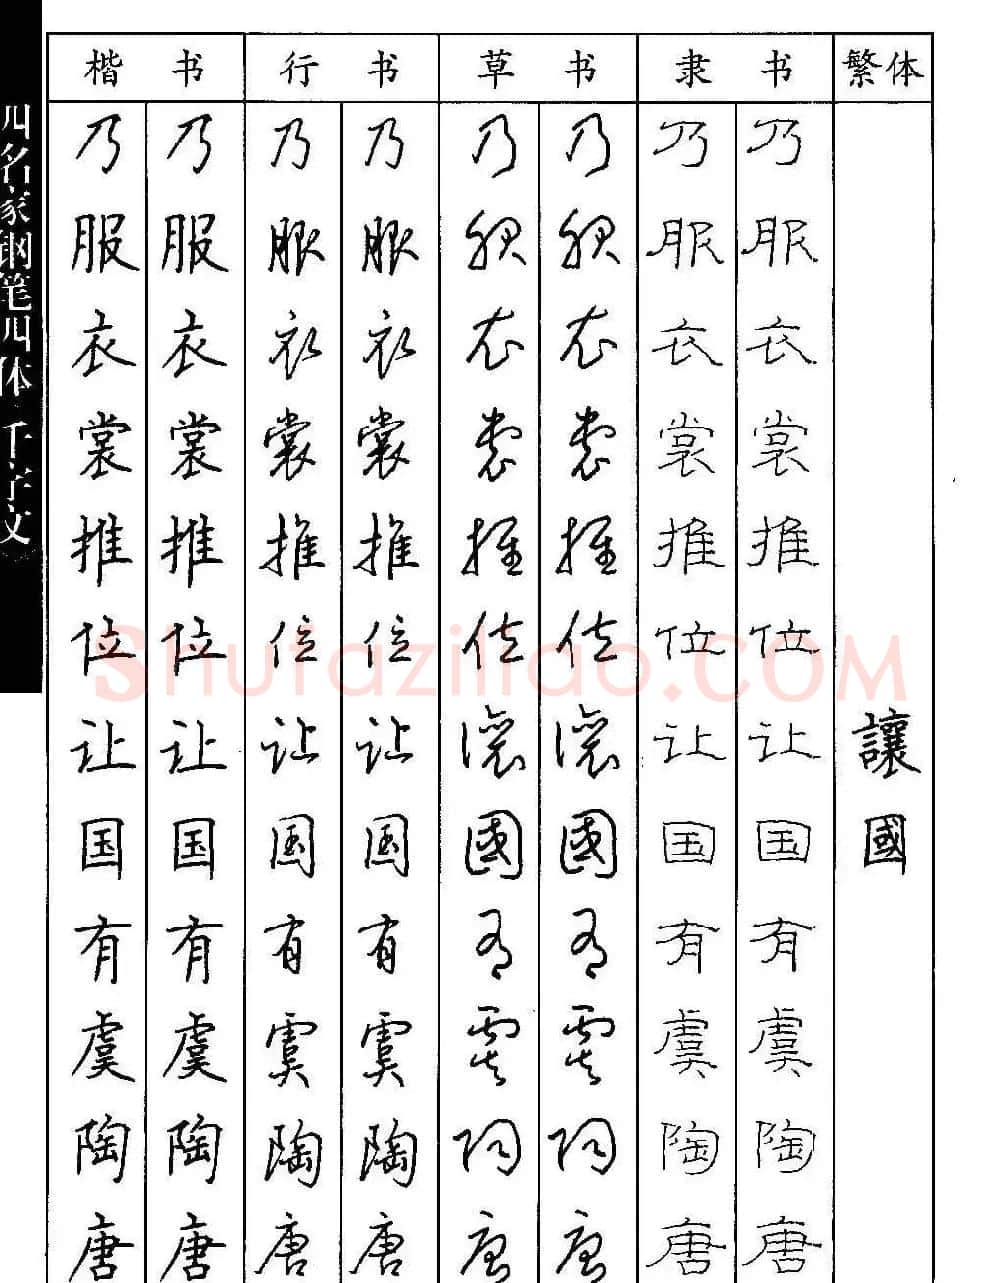 四名家钢笔四体·千字文
楷书 行书 草书 隶书 繁体
乃 乃 乃 乃 乃 乃 乃 乃
服 服 服 服 服 服 服 服
衣 衣 衣 衣 衣 衣 衣 衣
裳 裳 裳 裳 裳 裳 裳 裳
推 推 推 推 推 推 推 推
位 位 位 位 位 位 位 位
让 让 让 让 讓 讓 让 让 讓
国 国 国 国 國 國 国 国 國
有 有 有 有 有 有 有 有
虞 虞 虞 虞 虞 虞 虞 虞
陶 陶 陶 陶 陶 陶 陶 陶
唐 唐 唐 唐 唐 唐 唐 唐
Shufaziliao.COM